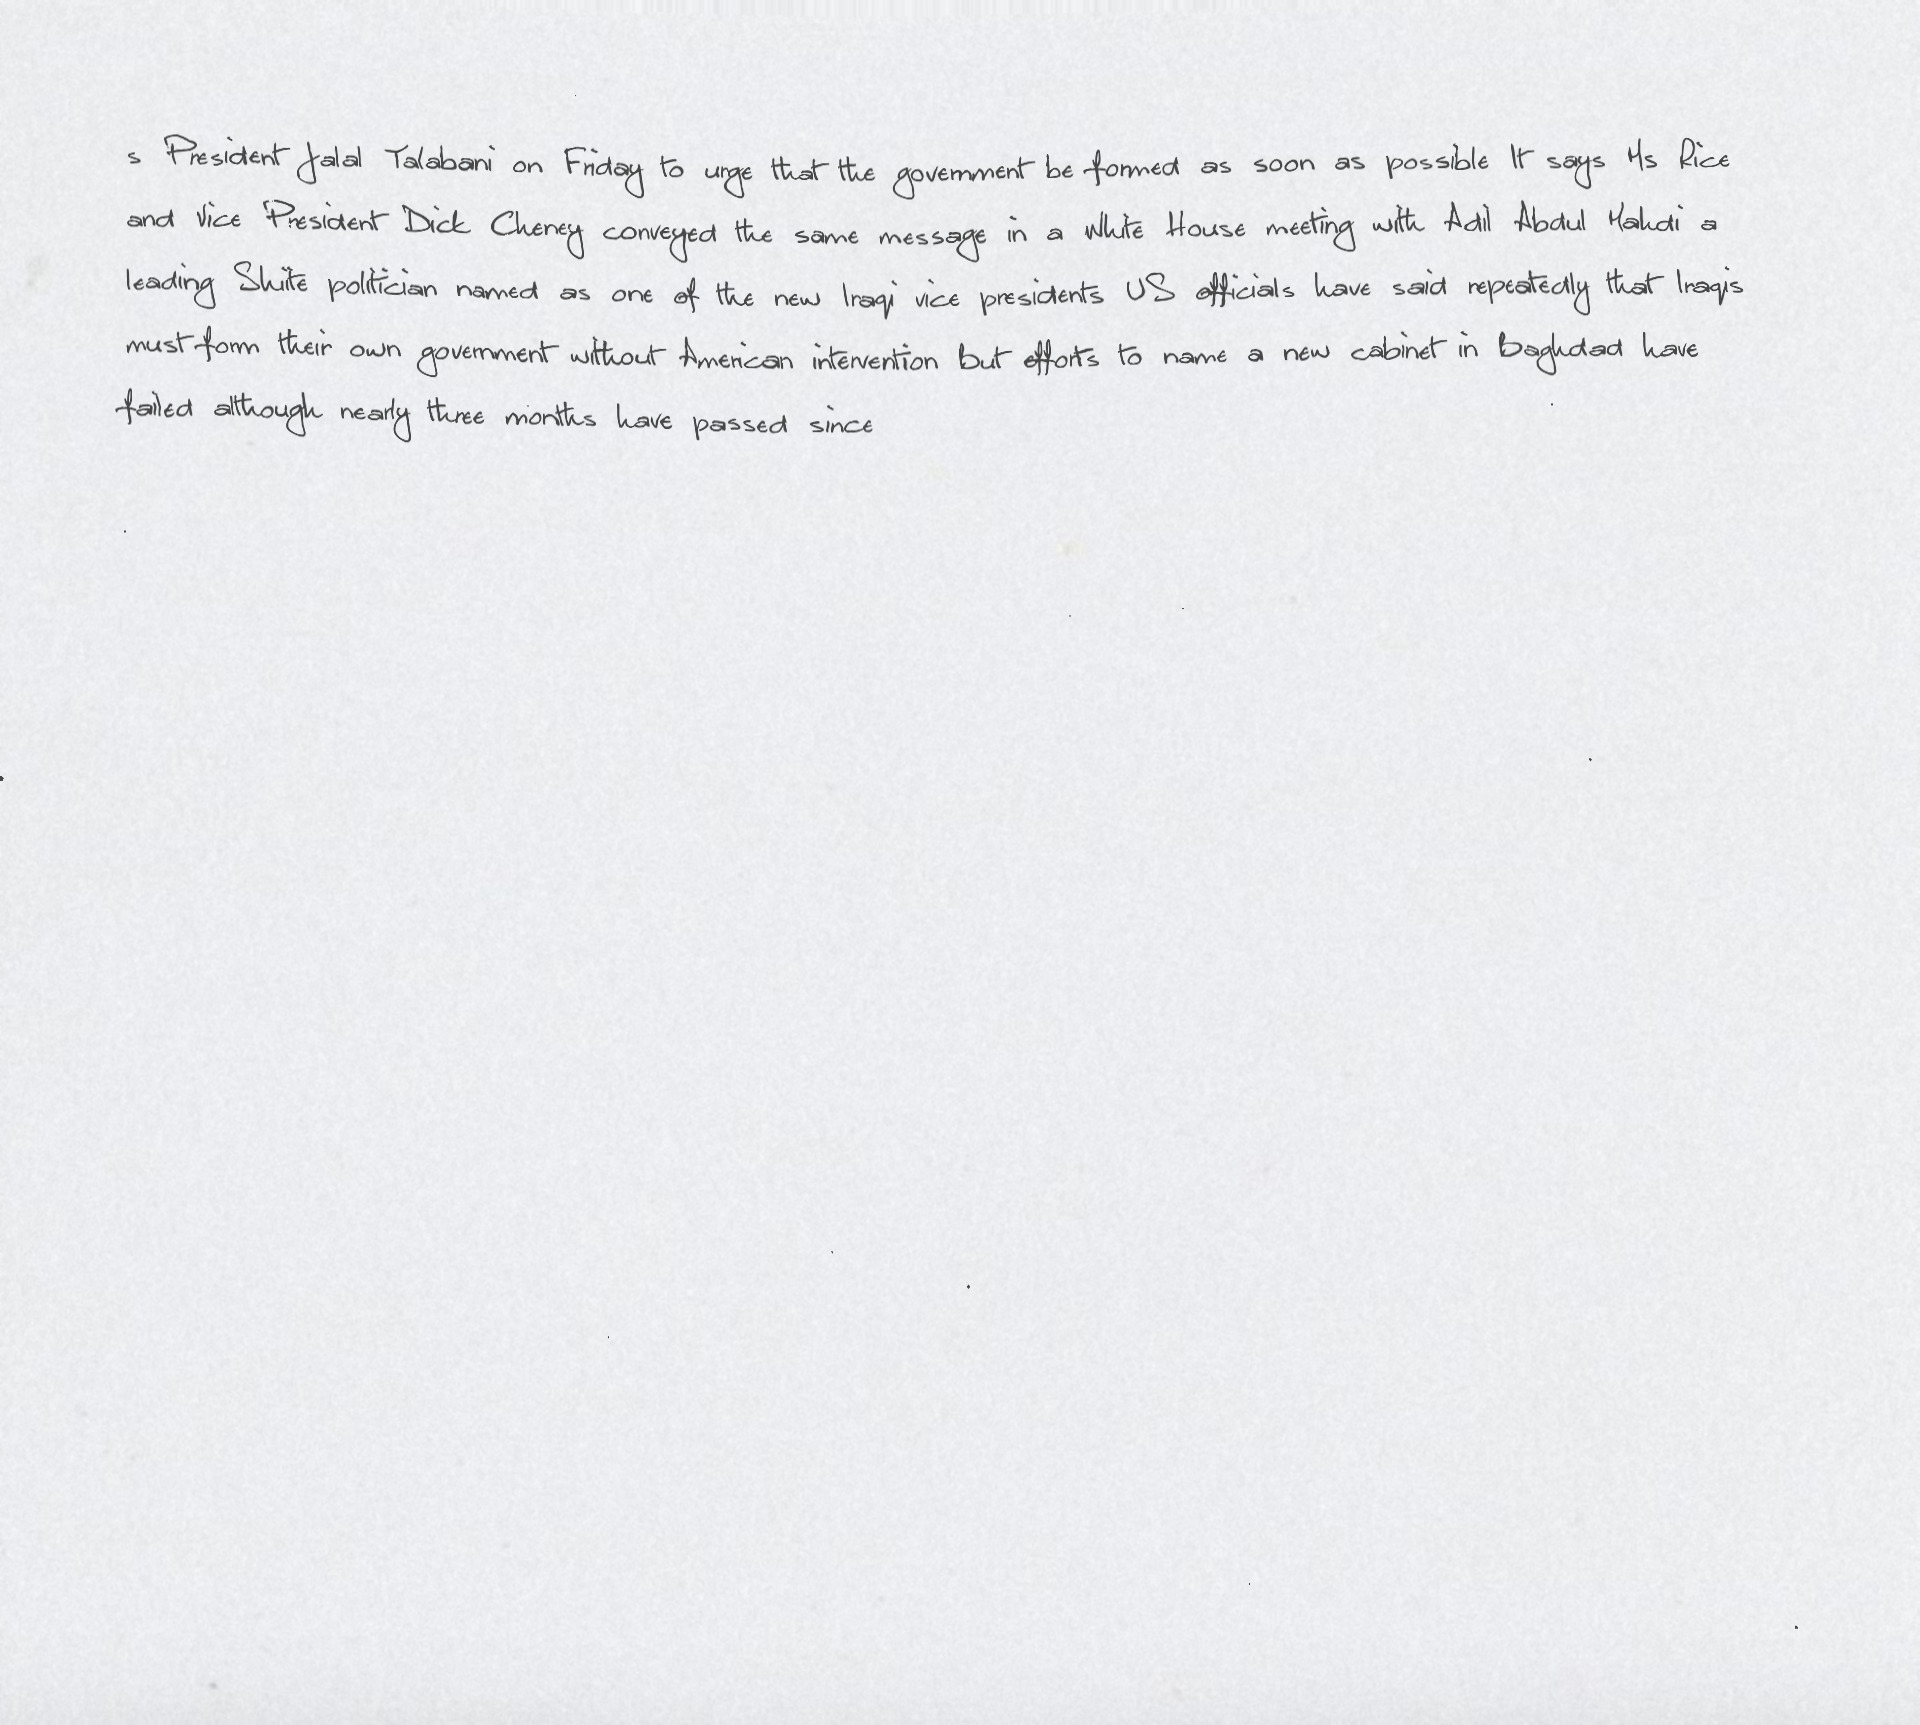 s President Jalal Talabani on Friday to urge that the government be formed as soon as possible It says Ms Rice
and Vice President Dick Cheney conveyed the same message in a White House meeting with Adil Abdul Mahdi a
leading Shiite politician named as one of the new Iraqi vice presidents US officials have said repeatedly that Iraqis
must form their own government without American intervention but efforts to name a new cabinet in Baghdad have
failed although nearly three months have passed since